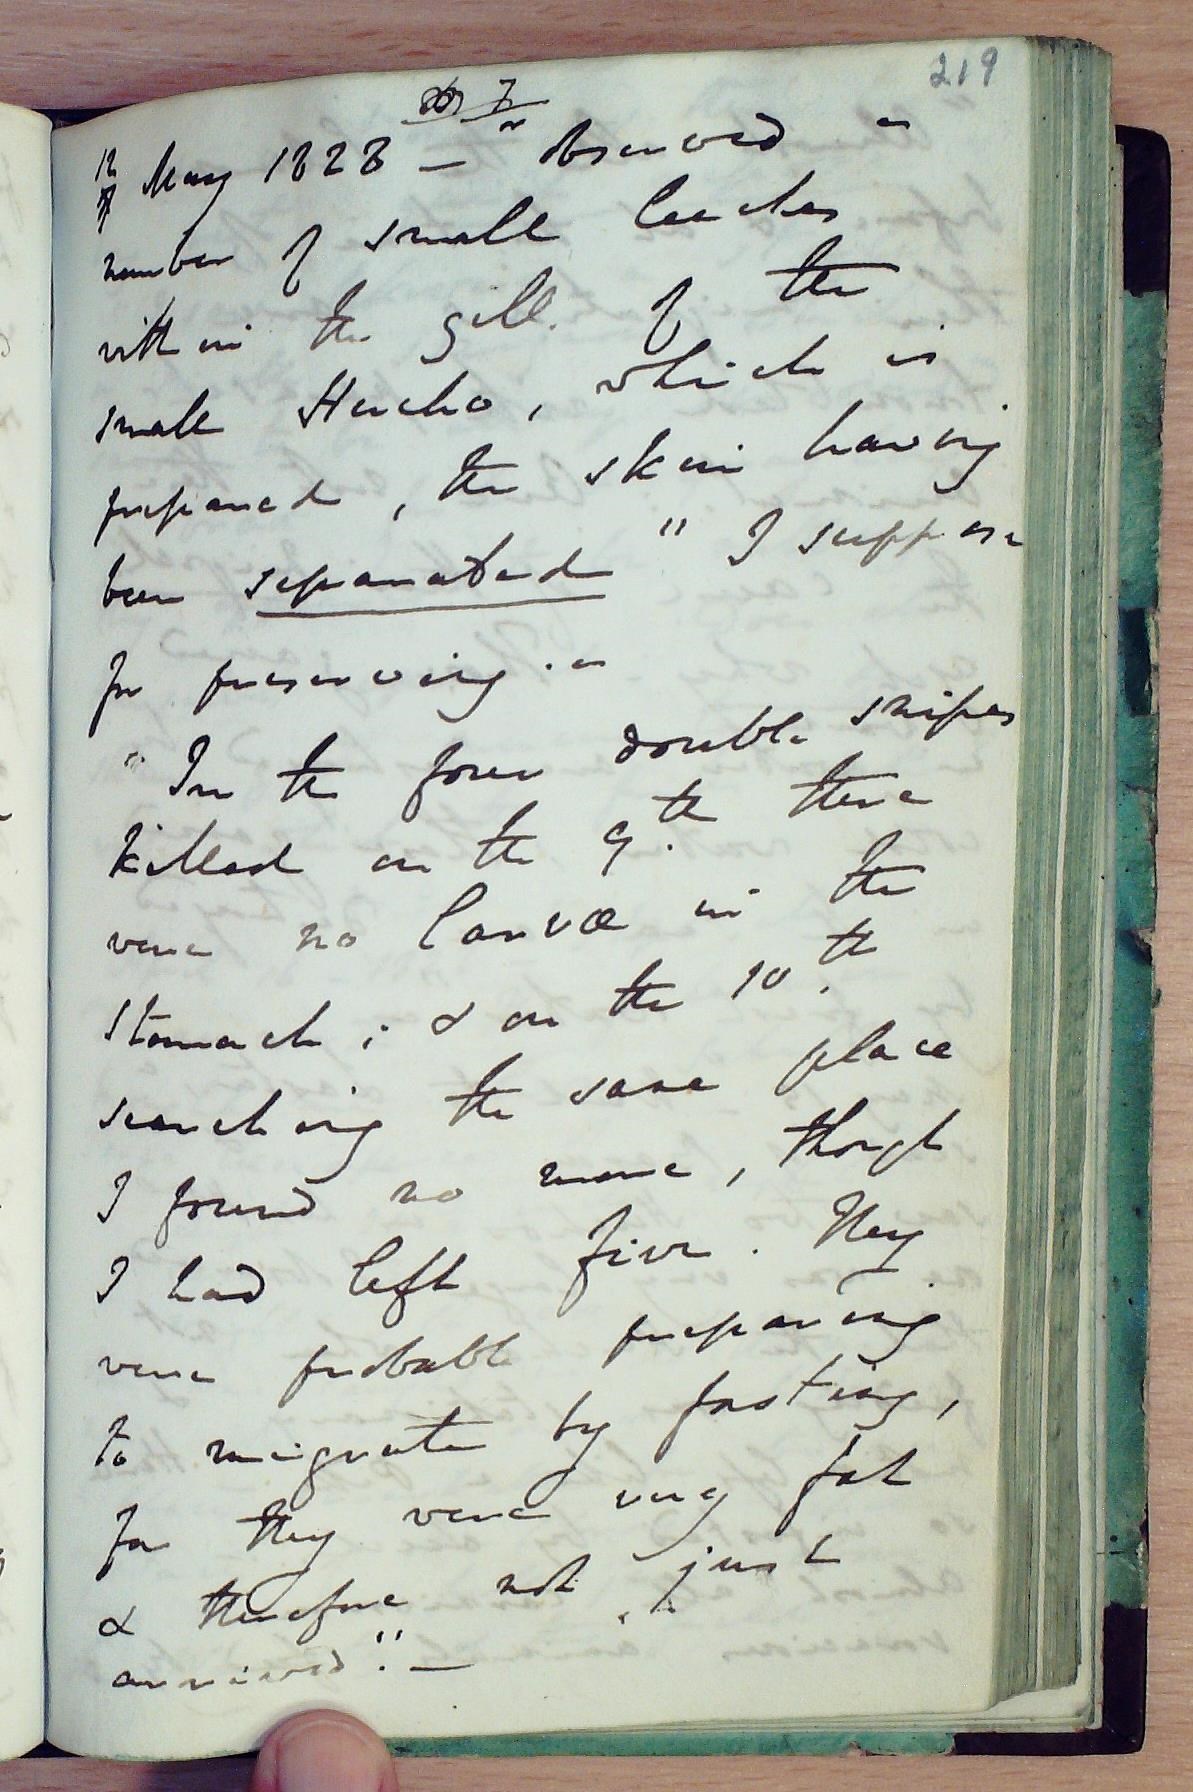 219
7
12 May 1828 — "Observed a
number of small leeches
within the gill of the
small Hucho, which is
prepared, the skin having
been separated" I suppose
for preserving. —
"In the four double snipes
killed on the 9.th there
were no larvæ in the
stomach; & on the 10.th
searching the same place
I found no more, though
I had left five. They
were probable preparing
to migrate by fasting,
for they were very fat
& therefore not just
arrived". —